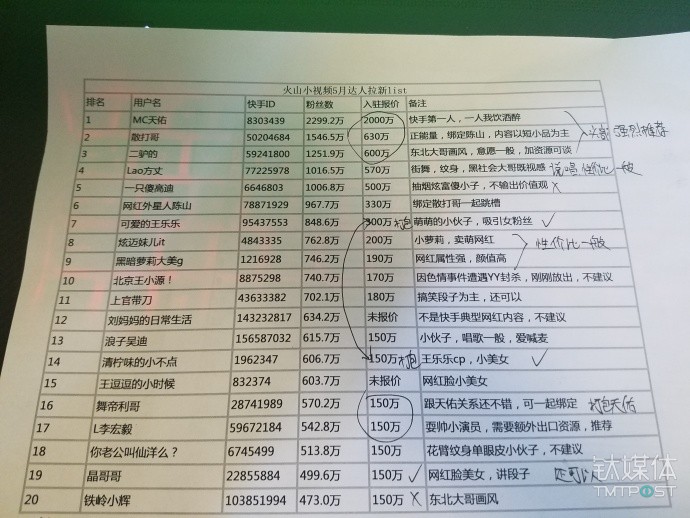 火山小视频5月达人拉新list
排名 用户名 快手ID 粉丝数 入驻报价 备注
1 MC天佑 8303439 2299.2万 2000万 快手第一人，一人我饮酒醉
2 散打哥 50204684 1546.5万 630万 正能量，绑定陈山，内容以短小品为主 强烈推荐
3 二驴的 59241800 1251.9万 600万 东北大哥画风，意愿一般，加资源可谈
4 Lao方丈 77225978 1016.5万 570万 街舞，纹身，黑社会大哥既视感 说唱 性价比一般
5 一只傻高迪 6646803 1006.8万 500万 抽烟炫富傻小子，不输出价值观 ×
6 网红外星人陈山 78871929 967.7万 330万 绑定散打哥一起跳槽
7 可爱的王乐乐 95437553 848.6万 300万 打包 萌萌的小伙子，吸引女粉丝 ✓
8 炫迈妹儿it 4843335 762.8万 200万 小萝莉，卖萌网红 性价比一般
9 黑暗萝莉大美g 1216928 746.2万 190万 网红属性强，颜值高
10 北京王小源！ 8875298 740.7万 170万 因色情事件遭遇YY封杀，刚刚放出，不建议
11 上官带刀 43633382 702.1万 180万 搞笑段子为主，还可以
12 刘妈妈的日常生活 143232817 634.2万 未报价 不是快手典型网红内容，不建议
13 浪子吴迪 156587032 615.7万 150万 小伙子，唱歌一般，爱喊麦
14 清柠味的小不点 1962347 606.7万 150万 打包 王乐乐cp，小美女 ✓
15 王逗逗的小时候 832374 603.7万 未报价 网红脸小美女
16 舞帝利哥 28741989 570.2万 150万 跟天佑关系还不错，可一起绑定 打包天佑
17 L李宏毅 59672184 542.8万 150万 耍帅小演员，需要额外出口资源，推荐
18 你老公叫仙洋么？ 6745499 513.8万 150万 花臂纹身单眼皮小伙子，不建议
19 晶哥哥 22855884 499.6万 150万 ✓ 网红脸美女，讲段子 还可以
20 铁岭小辉 103851994 473.0万 150万 × 东北大哥画风
钛媒体
TMTPOST